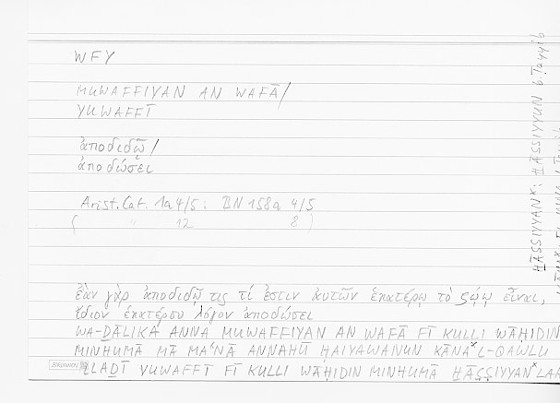 WFY
MUWAFFIYAN AN WAFĀ/
YUWAFFĪ
ἀποδιδῷ/
ἀποδώσει
Arist. Cat. 1a 4/5 : BN 158a 4/5
( " 12 8 )
ἐὰν γὰρ ἀποδιδῷ τις τί ἐστιν αὐτῶν ἑκατέρῳ τὸ ζῴῳ εἶναι,
ἴδιον ἑκατέρου λόγον ἀποδώσει
WA-ḎĀLIKA ANNA MUWAFFIYAN AN WAFĀ FĪ KULLI WĀḤIDIN
MINHUMĀ MĀ MAʿNĀ ANNAHŪ ḤAIYAWANUN KĀNAˣ L-QAWLU
LLAḎĪ YUWAFFĪ FĪ KULLI WĀḤIDIN MINHUMĀ ḪĀṢṢIYYANˣ LAA
ḪĀṢṢIYYANˣ: ḪĀṢṢIYYUN b. Ṭayyib